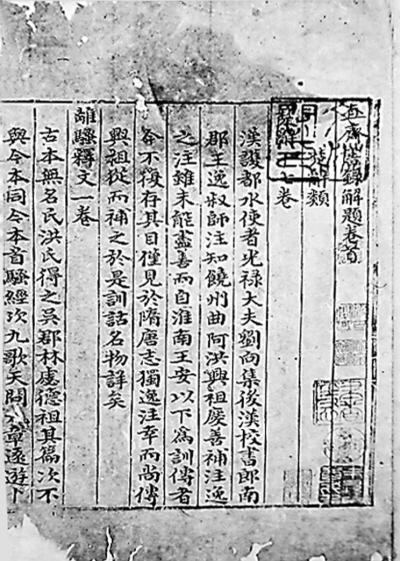 直齋書錄解題卷
楚辭類
七卷
漢護都水使者光祿大夫劉向集後漢校書郎南
郡王逸叔師注知饒州曲阿洪興祖慶善補注逸
之注雖未能盡善而自淮南王安以下爲訓傳者
今不復存其目僅見於隋唐志獨逸注幸而尚傳
興祖從而補之於是訓詁名物詳矣
離騷釋文一卷
古本無名氏洪氏得之吳郡林慮德祖其篇次不
與今本同今本首騷經次九歌天問九章遠遊卜